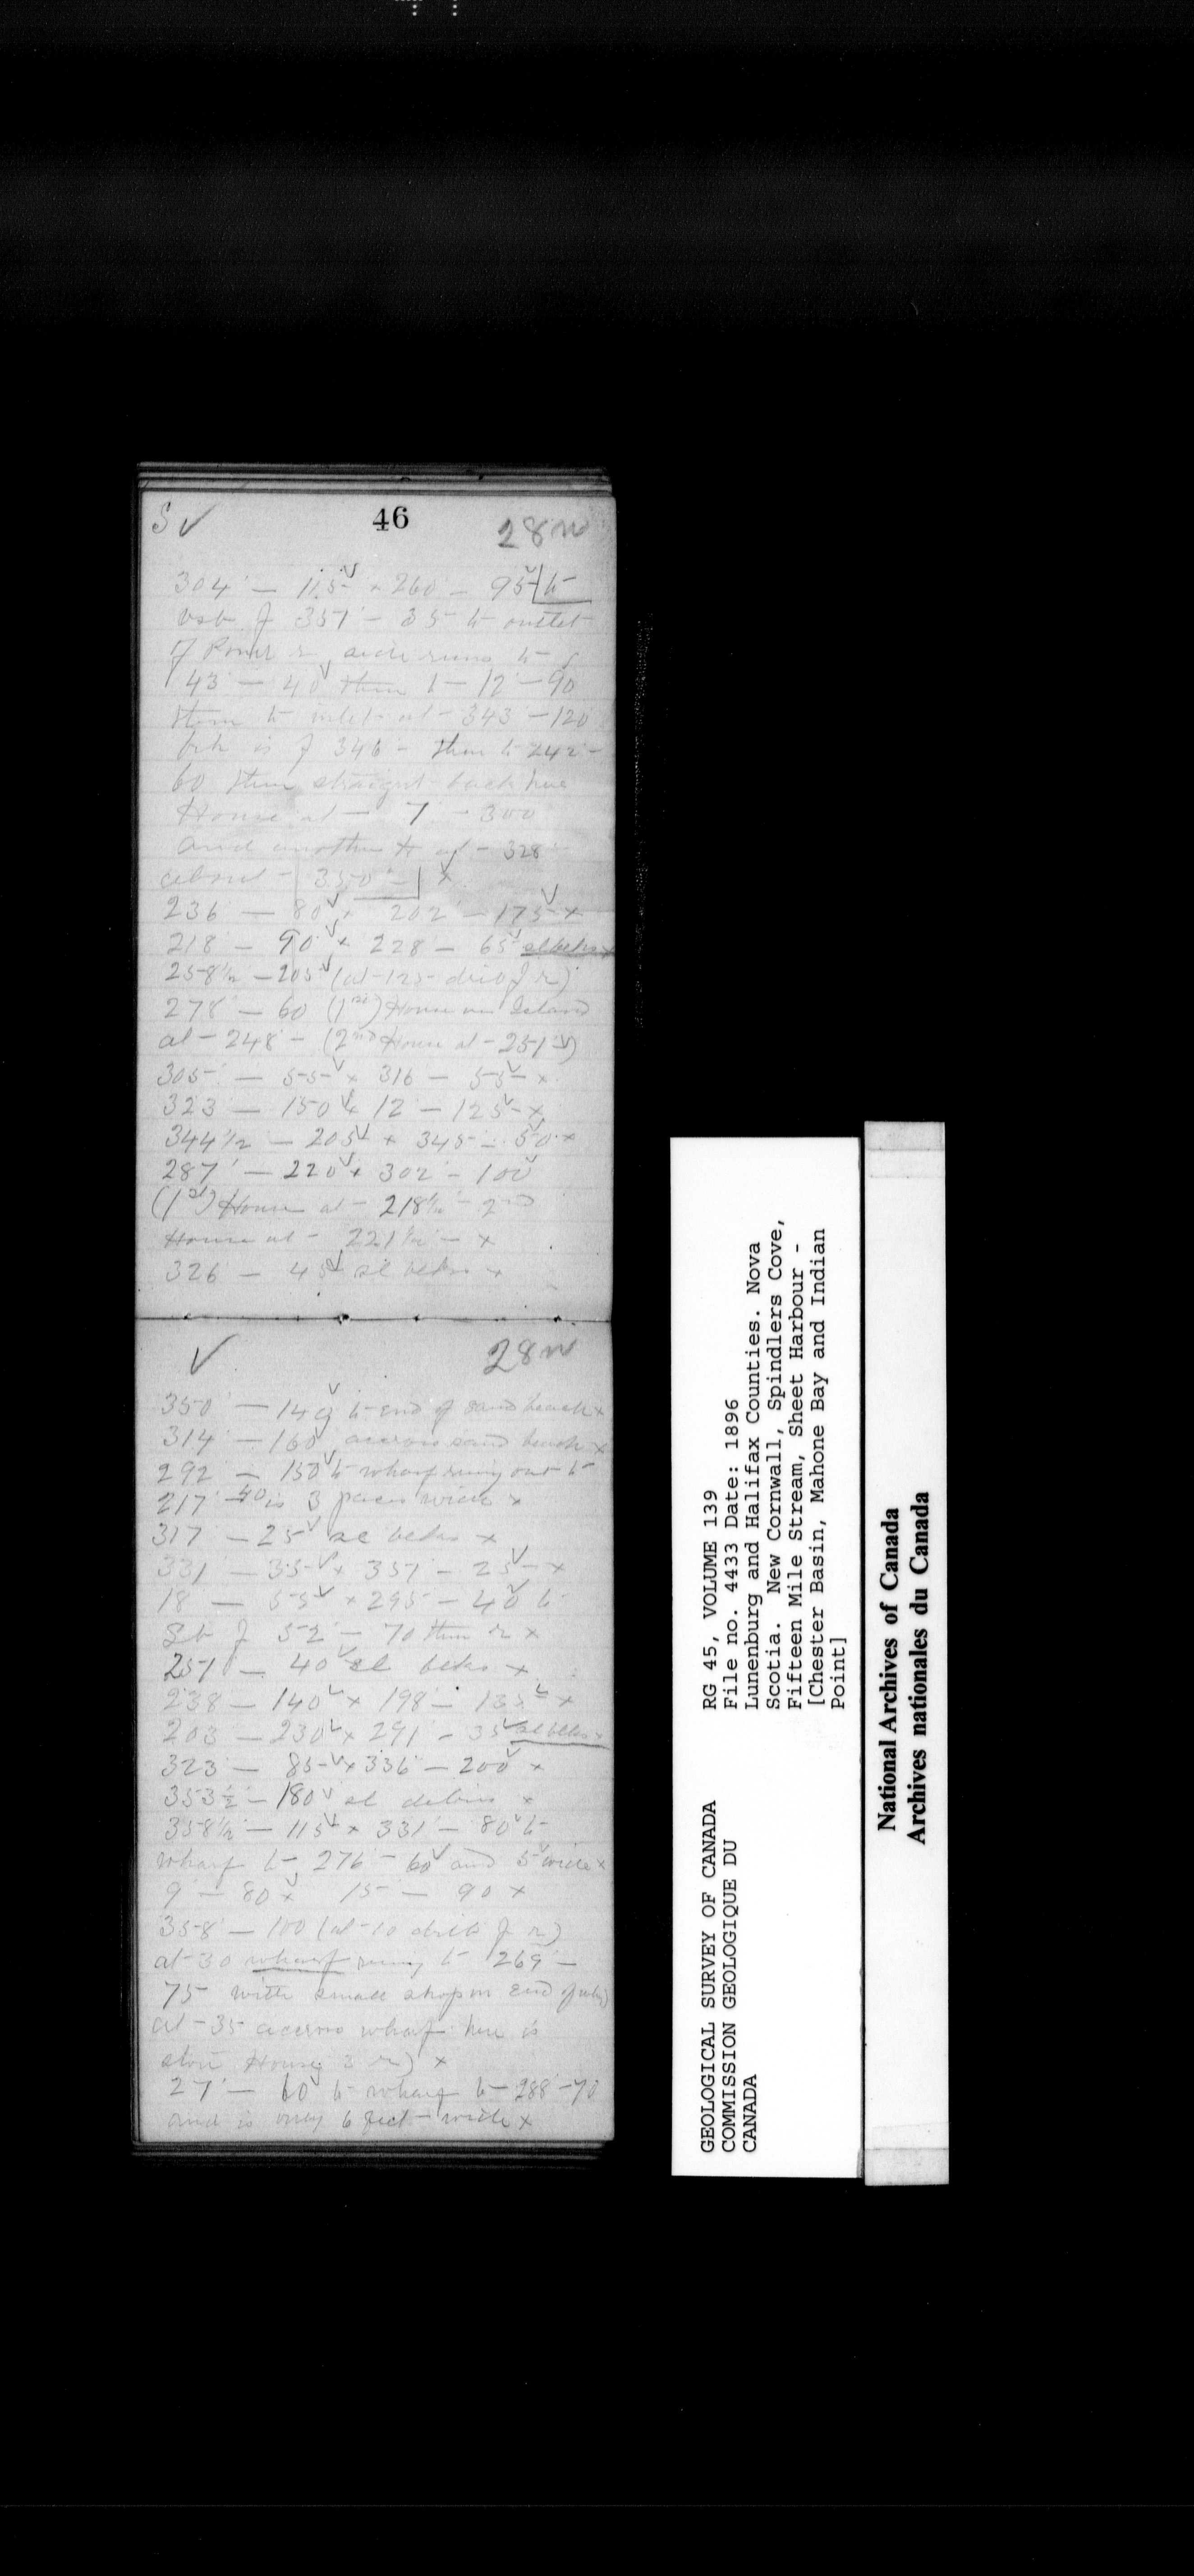 S ✓ 46 28 w
304 — 115 × 260 — 95 to
vsb of 351 — 35 to outlet
of Pond r side runs to
43 — 40 then to 12 — 90
then to inlet at 343 — 120
bch is of 346 — then to 242 —
60 then straight back here
House at — 7 — 300
and another H at — 328
about — 350 — ×
236 — 80 × 202 — 175 ×
218 — 90 × 228 — 65
258½ — 205 (at 125 of r)
278 — 60 (1st) House on Island
at — 248 — (2nd House at — 251)
305 — 55 × 316 — 55 ×
323 — 150 × 12 — 125 ×
344½ — 205 × 345 — 50 ×
287 — 220 × 302 — 100
(1st) House at — 218½ — 2nd
House at — 221½ — ×
326 — 45 sl ×
✓ 28 w
350 — 140 to end of sand beach ×
314 — 160 accross sand beach ×
292 — 150 to wharf runing out to
217 — 40 is 3 paces wide ×
317 — 25 ×
331 — 35 × 357 — 25 ×
18 — 55 × 295 — 40 to
Sb of 52 — 70 then r ×
251 — 40 sl ×
238 — 140 × 198 — 135 ×
203 — 230 × 291 — 35
323 — 85 × 336 — 200 ×
353½ — 180 sl debris ×
358½ — 115 × 331 — 80 to
wharf to 276 — 60 and 5 wide ×
9 — 80 × 15 — 90 ×
358 — 100 (at 10 of r)
at 30 wharf runing to 269 —
75 with small shop on end of
at 35 accross wharf here is
store House 3 r) ×
27 — 60 to wharf to 288 — 70
and is only 6 feet wide ×
GEOLOGICAL SURVEY OF CANADA
COMMISSION GEOLOGIQUE DU
CANADA
RG 45, VOLUME 139
File no. 4433 Date: 1896
Lunenburg and Halifax Counties. Nova
Scotia. New Cornwall, Spindlers Cove,
Fifteen Mile Stream, Sheet Harbour -
[Chester Basin, Mahone Bay and Indian
Point]
National Archives of Canada
Archives nationales du Canada